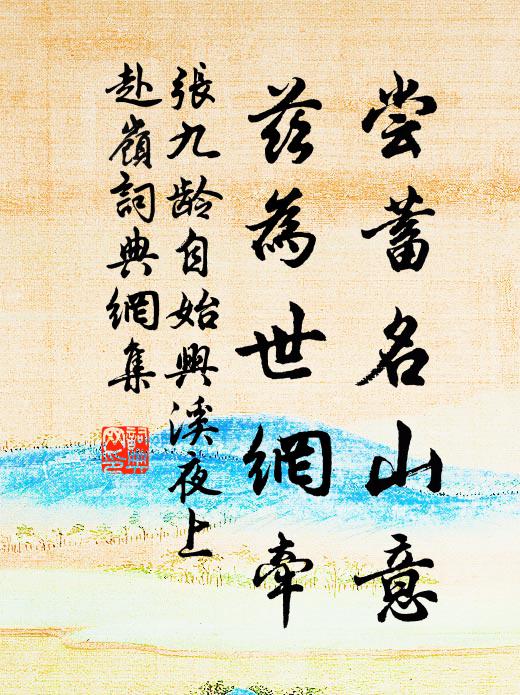 嘗蓄名山意
茲為世網牽
張九齡自始興溪夜上
赴嶺詞典網集